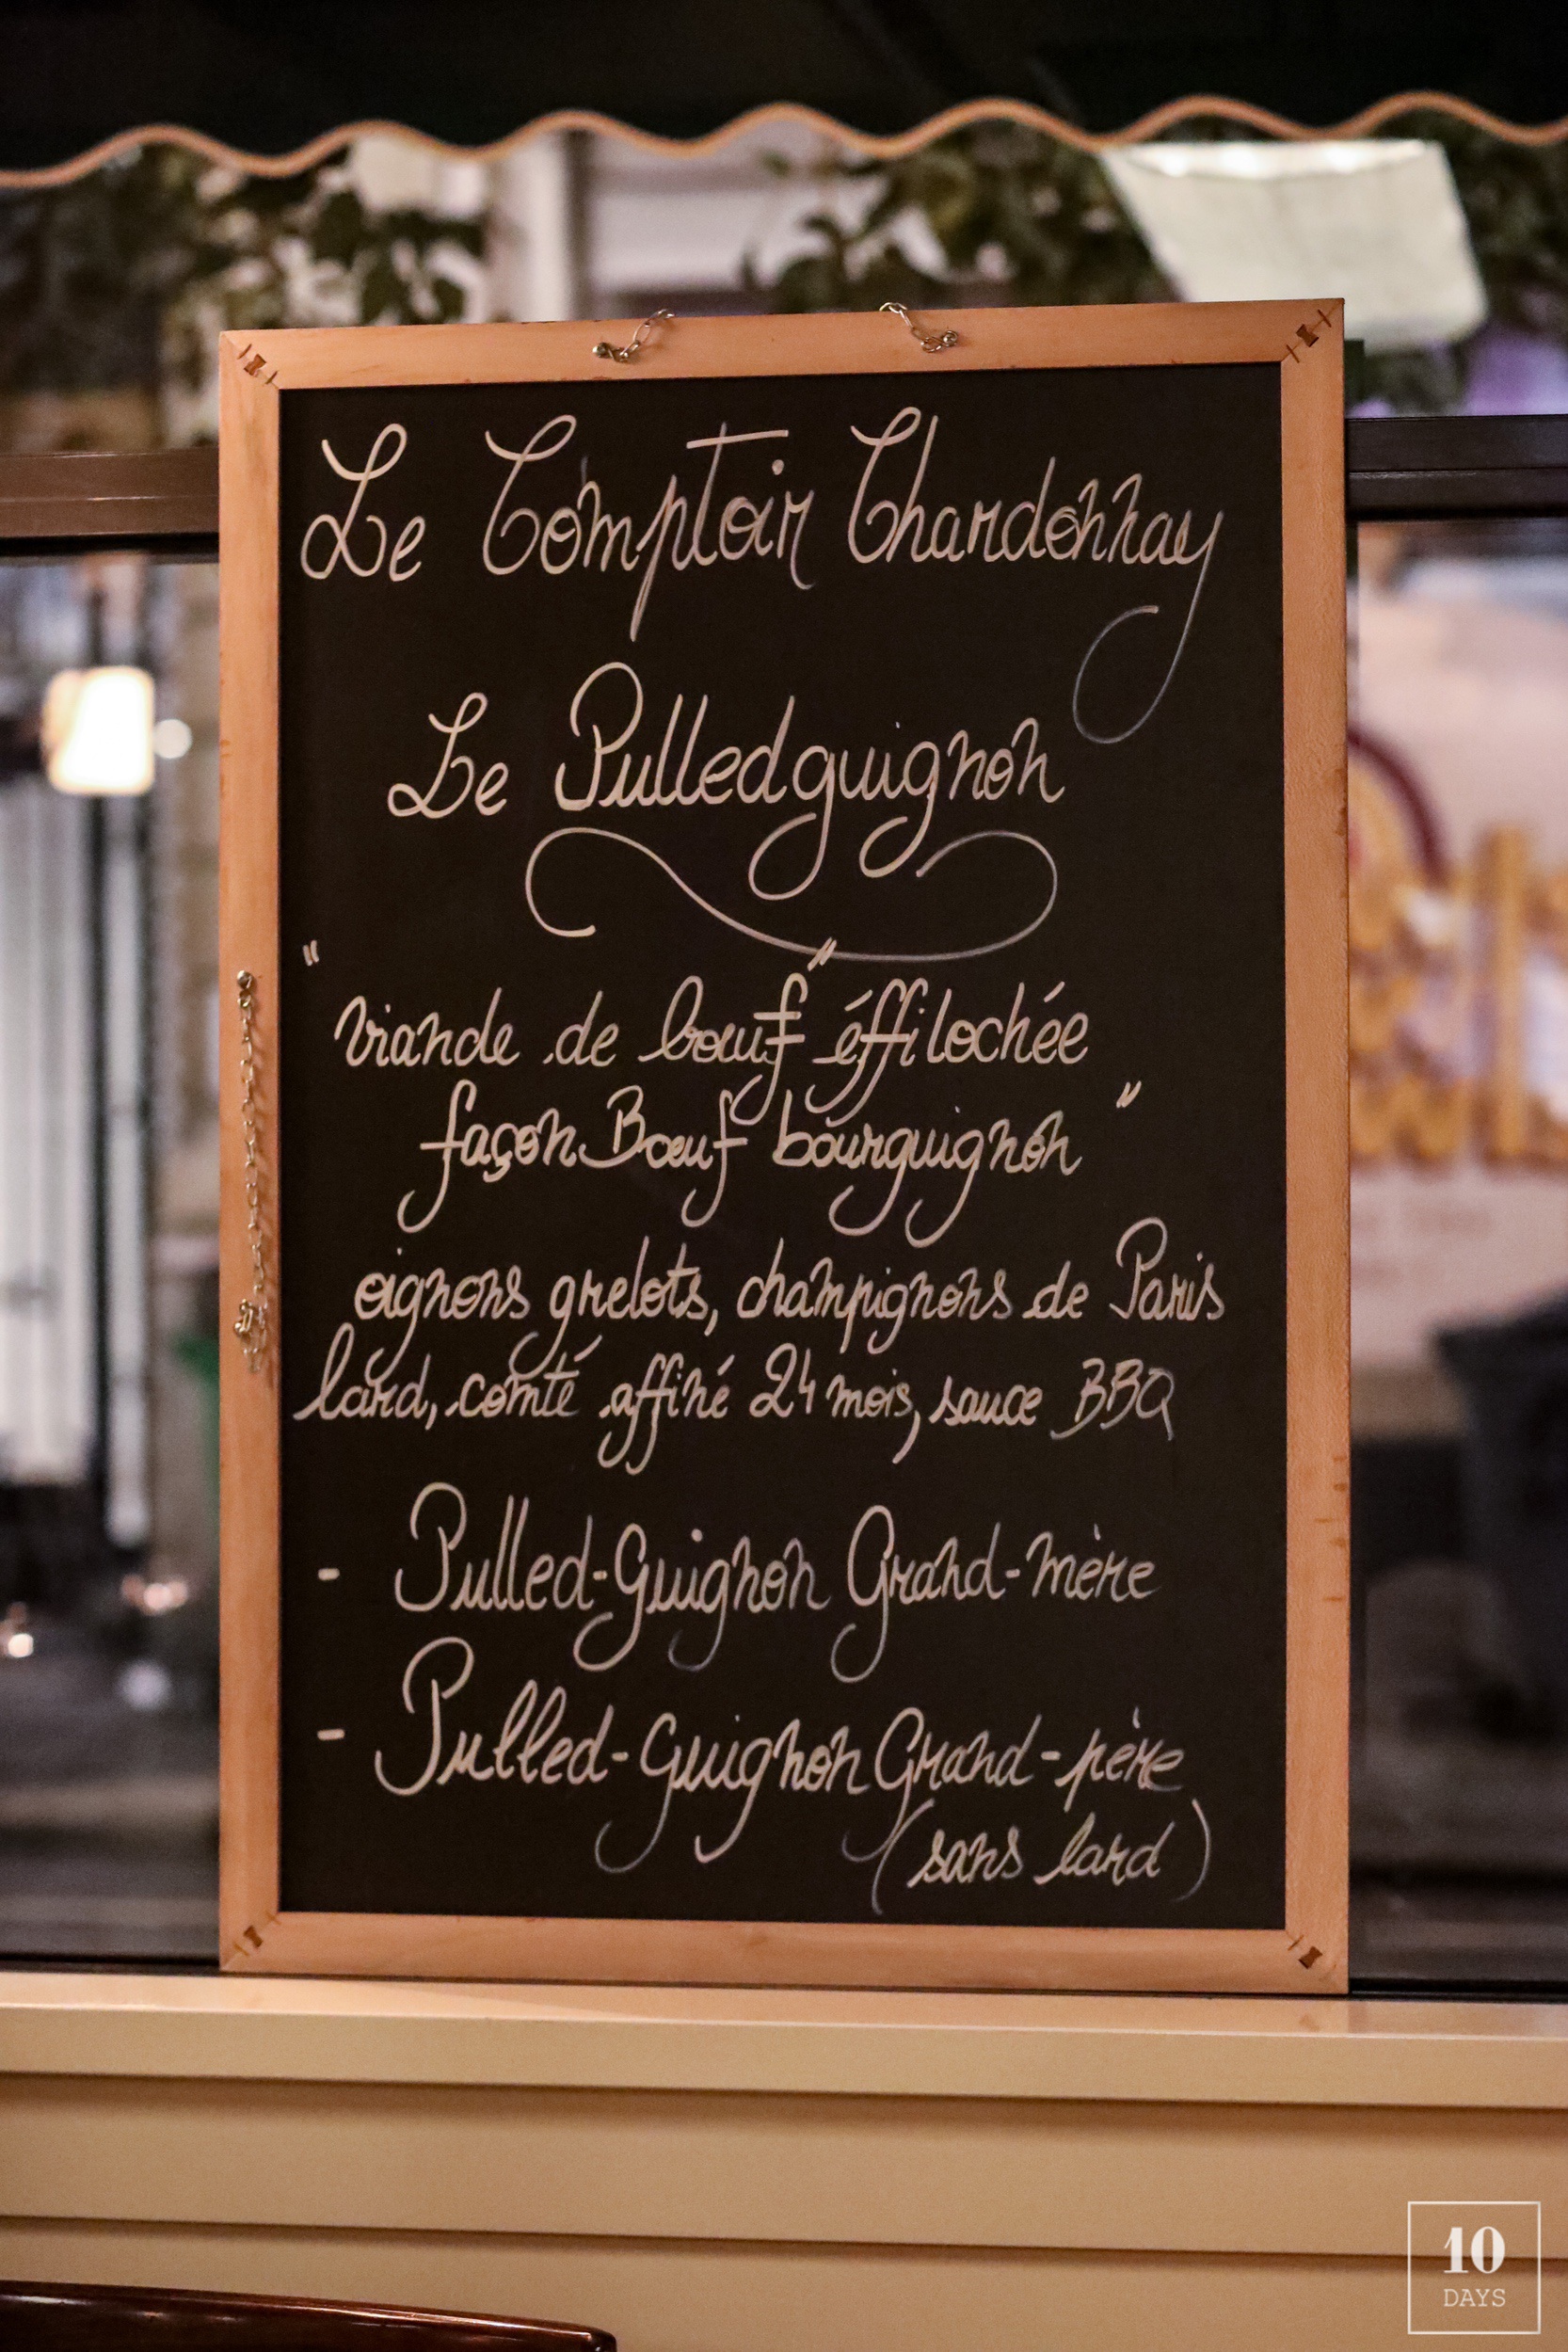 Le Comptoir Chardonnay
Le Pulledguignon
"viande de bœuf" éffilochée
façon Bœuf bourguignon"
oignons grelots, champignons de Paris
lard, comté affiné 24 mois, sauce BBQ
- Pulled-Guignon Grand-mère
- Pulled-Guignon Grand-père
(sans lard)
10
DAYS